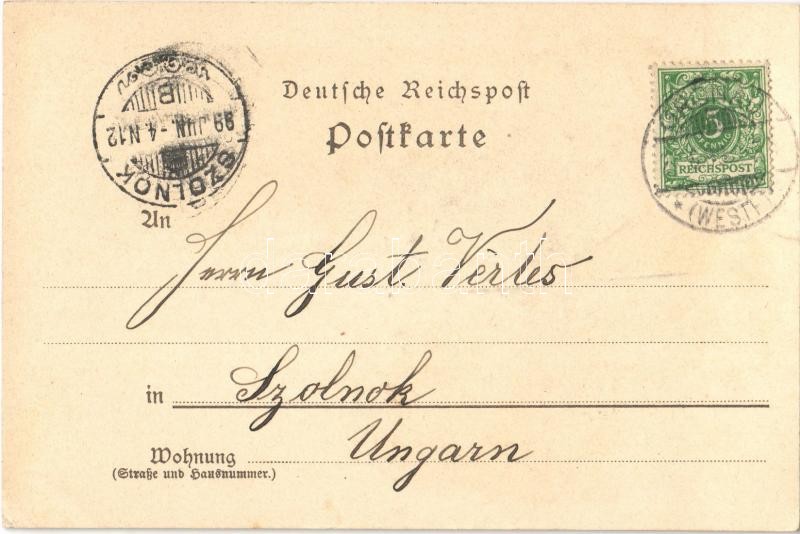 Deutsche Reichspost
Postkarte
SZOLNOK
99 JUN. -4. N.12
B
5
PFENNIG
REICHSPOST
* (WESTF.)
An
Herrn Gust. Vértes
in Szolnok
Wohnung Ungarn
(Straße und Hausnummer.)